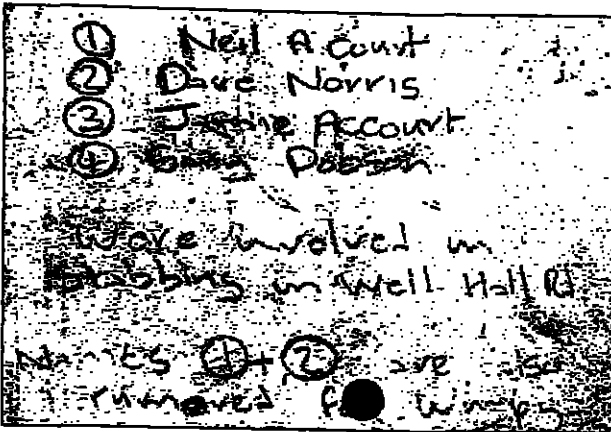 ① Neil Acourt
② Dave Norris
③ Jamie Accourt
④ Gary Dobson
Were involved in
stabbing in Well Hall Rd
Names ① + ② are also
rumoured